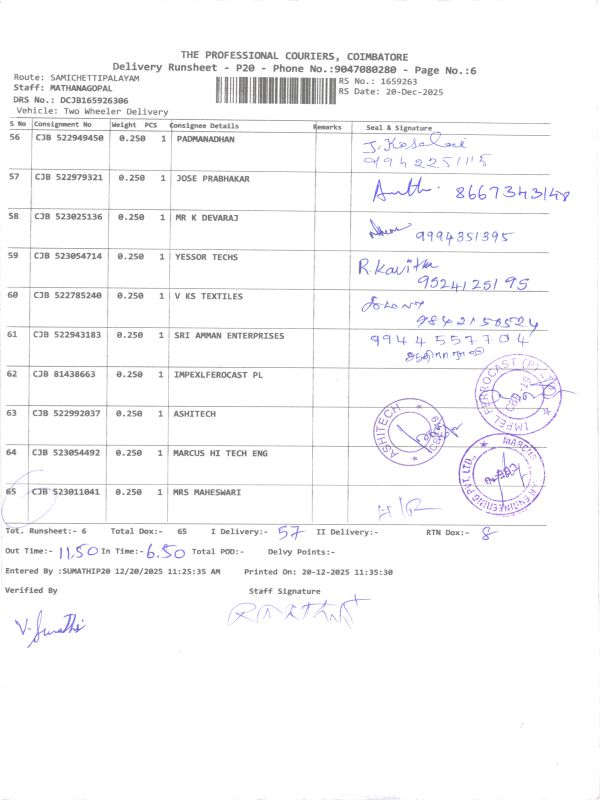 THE PROFESSIONAL COURIERS, COIMBATORE
Delivery Runsheet - P20 - Phone No.:9047080280 - Page No.:6
Route: SAMICHETTIPALAYAM
RS No.: 1659263
Staff: MATHANAGOPAL
RS Date: 20-Dec-2025
DRS No.: DCJB165926306
Vehicle: Two Wheeler Delivery
S No Consignment No Weight PCS Consignee Details Remarks Seal & Signature
56 CJB 522949450 0.250 1 PADMANADHAN J. Kosalai
9942251115
57 CJB 522979321 0.250 1 JOSE PRABHAKAR 8667343148
58 CJB 523025136 0.250 1 MR K DEVARAJ
9994351395
59 CJB 523054714 0.250 1 YESSOR TECHS R.Kavitha
9524125195
60 CJB 522785240 0.250 1 V KS TEXTILES
9842158524
61 CJB 522943183 0.250 1 SRI AMMAN ENTERPRISES 9944557704
62 CJB 81438663 0.250 1 IMPEXLFEROCAST PL
IMPEL FERROCAST (P)
63 CJB 522992037 0.250 1 ASHITECH
ASHITECH
64 CJB 523054492 0.250 1 MARCUS HI TECH ENG
ENGINEERING PVT. LTD.
65 CJB 523011041 0.250 1 MRS MAHESWARI
Tot. Runsheet:- 6 Total Dox:- 65 I Delivery:- 57 II Delivery:- RTN Dox:- 8
Out Time:- 11.50 In Time:- 6.50 Total POD:- Delvy Points:-
Entered By :SUMATHIP20 12/20/2025 11:25:35 AM Printed On: 20-12-2025 11:35:30
Verified By Staff Signature
V. Sumathi